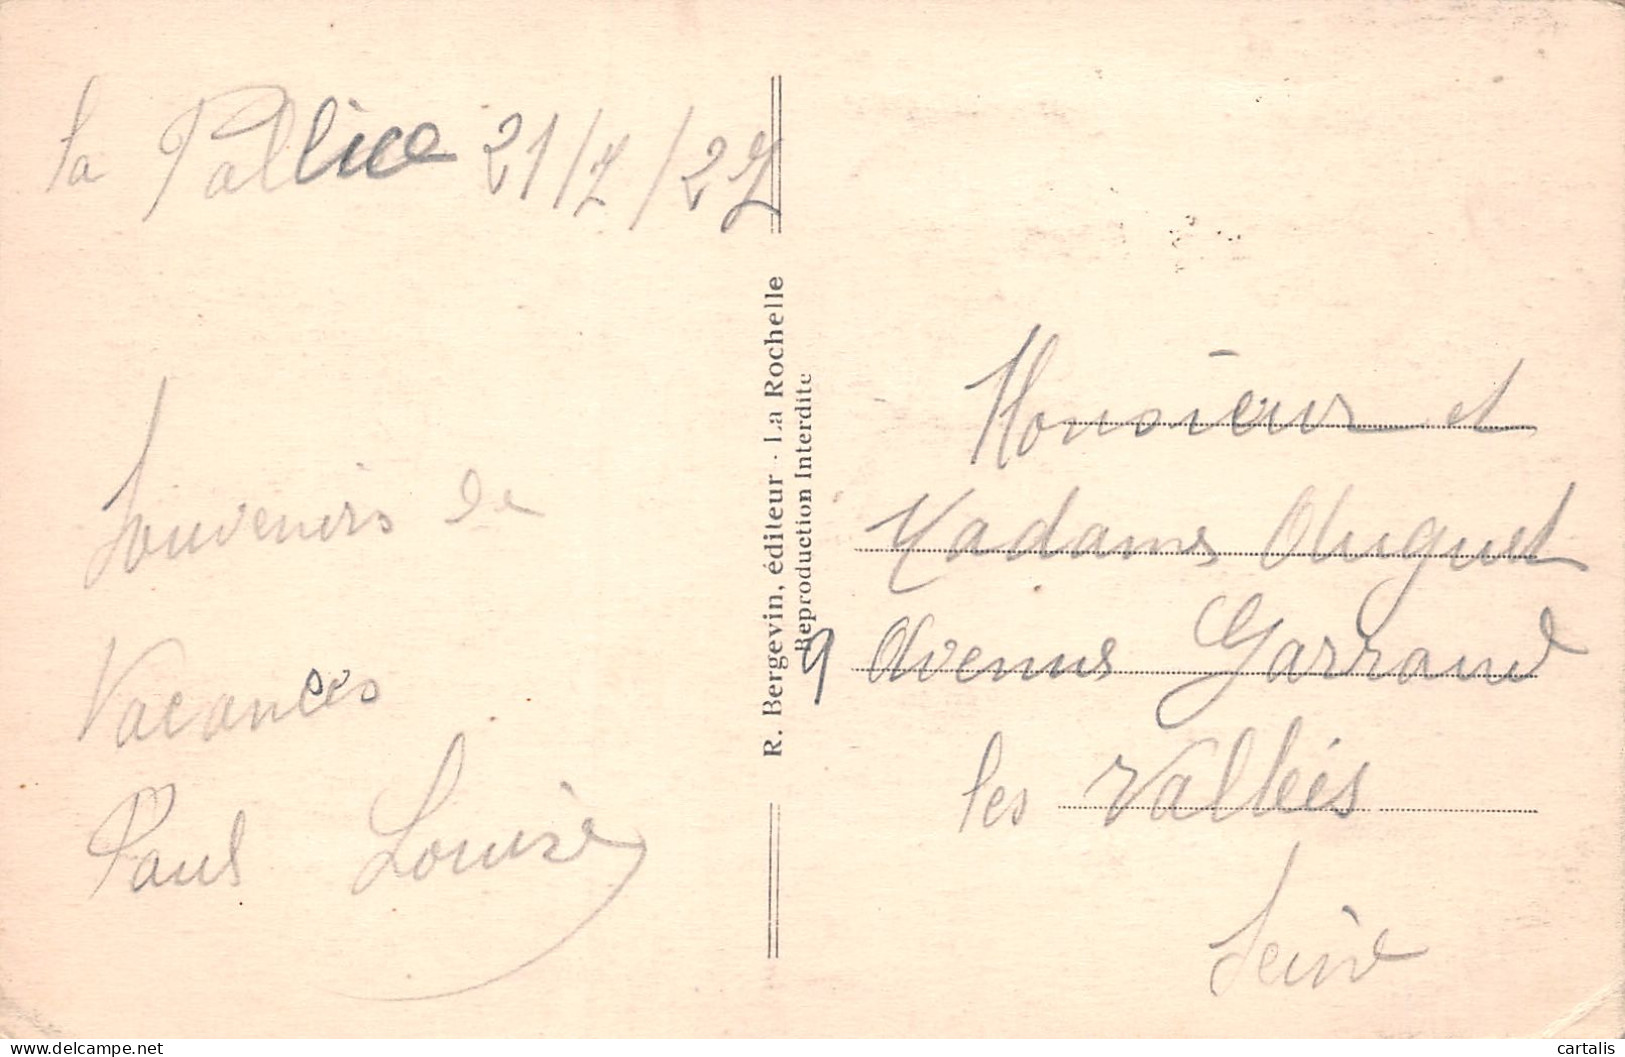 la Pallice 21/7/27
Souvenirs de
Vacances
Paul Louise
R. Bergevin, éditeur - La Rochelle
Reproduction Interdite
Monsieur et
Madame Huguet
9 Avenue Garraud
les Vallées
Seine
cartalis